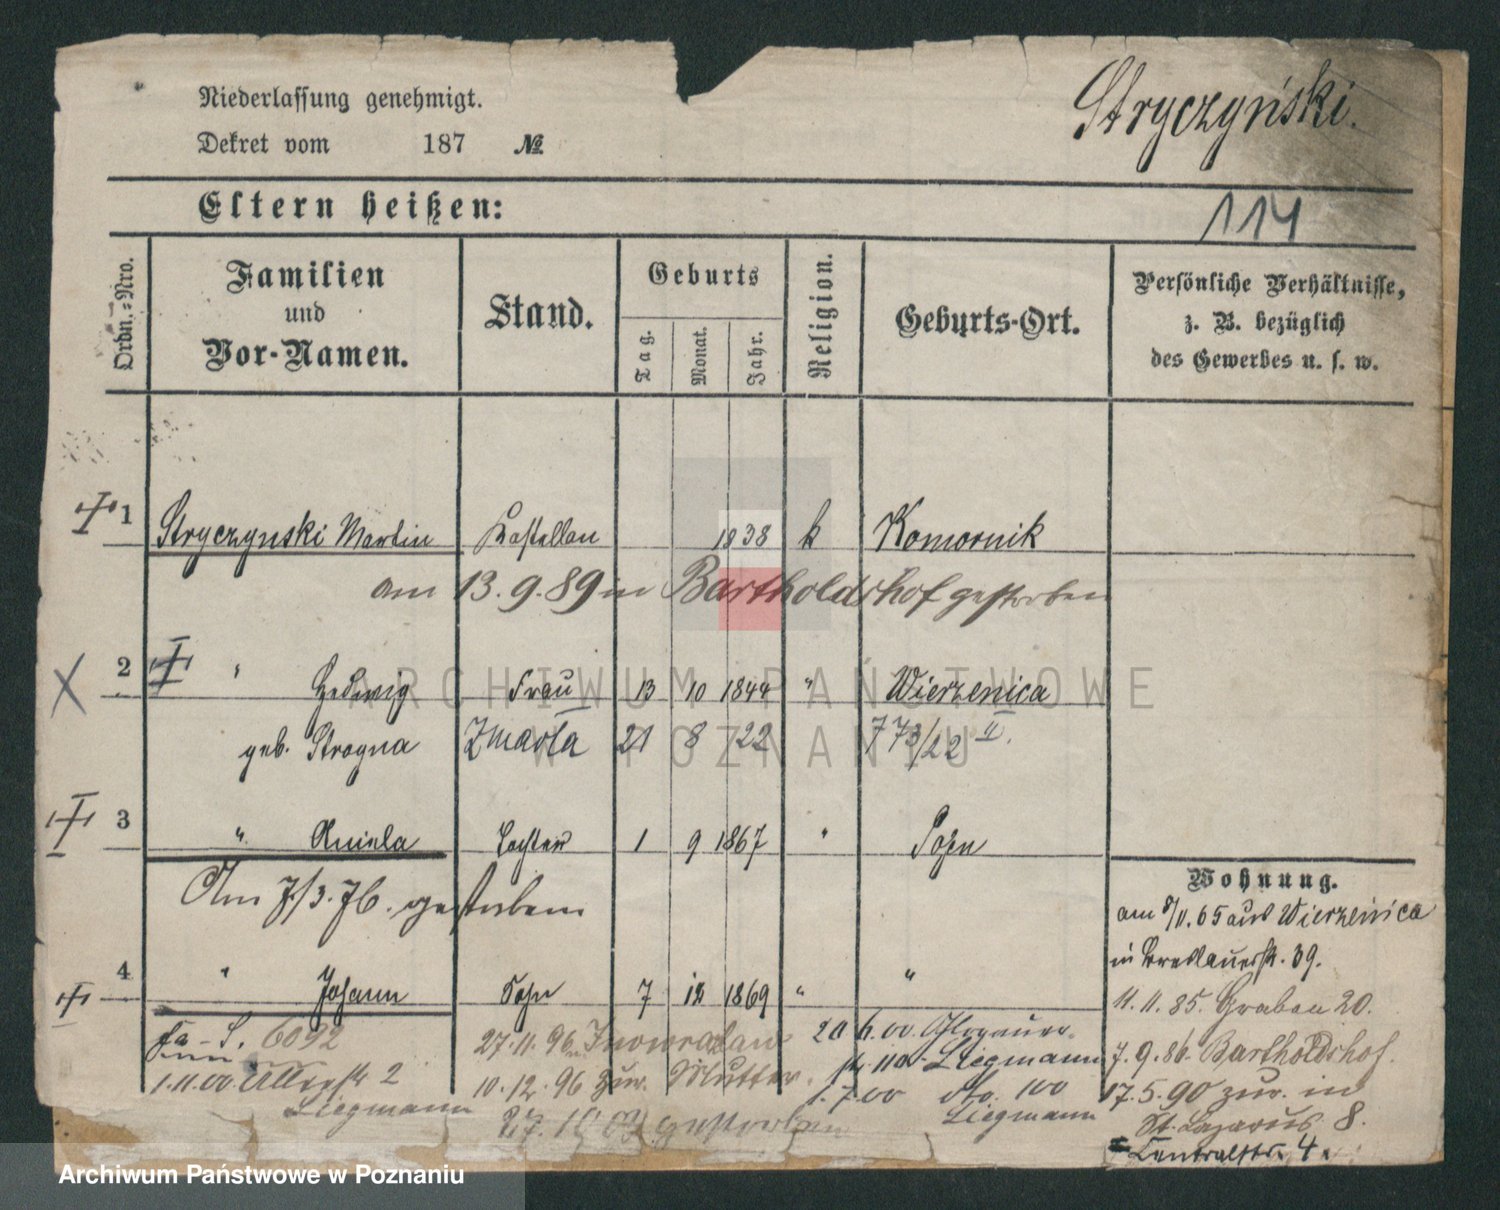 Niederlassung genehmigt.
Stryczyński.
Dekret vom 187 №
Eltern heißen:
114
Ordn.=Nro.
Familien
und
Vor-Namen.
Stand.
Geburts
Tag.
Monat.
Jahr.
Religion.
Geburts-Ort.
Persönliche Verhältnisse,
z. B. bezüglich
des Gewerbes u. s. w.
1 Stryczynski Martin Kastellan 1838 k Komornik
am 13.9.89 in Bartholdshof gestorben
2 " Hedwig Frau 13 10 1844 " Wierzenica
geb. Strogna Zmarła 21 8 22 773/22 II.
3 " Aniela Tochter 1 9 1867 " Posen
Am 7/3.76. gestorben
4 " Johann Sohn 7 12 1869 " "
Wohnung.
am 8/11.65 aus Wierzenica
in Breslauerstr. 39.
11.11.85. Graben 20.
7.9.86. Bartholdshof.
17.5.90 zur. in
St. Lazarus 8.
Centralstr. 4a
6092
1.11.00. 2
Liegmann
27.11.96 n. Inowrazlaw
10.12.96 zur. Mutter.
27.10.03 gestorben
20.6.00 Glogauer-
str. 110. Liegmann
1.7.00 No. 100
Liegmann
ARCHIWUM PAŃSTWOWE
W POZNANIU
Archiwum Państwowe w Poznaniu